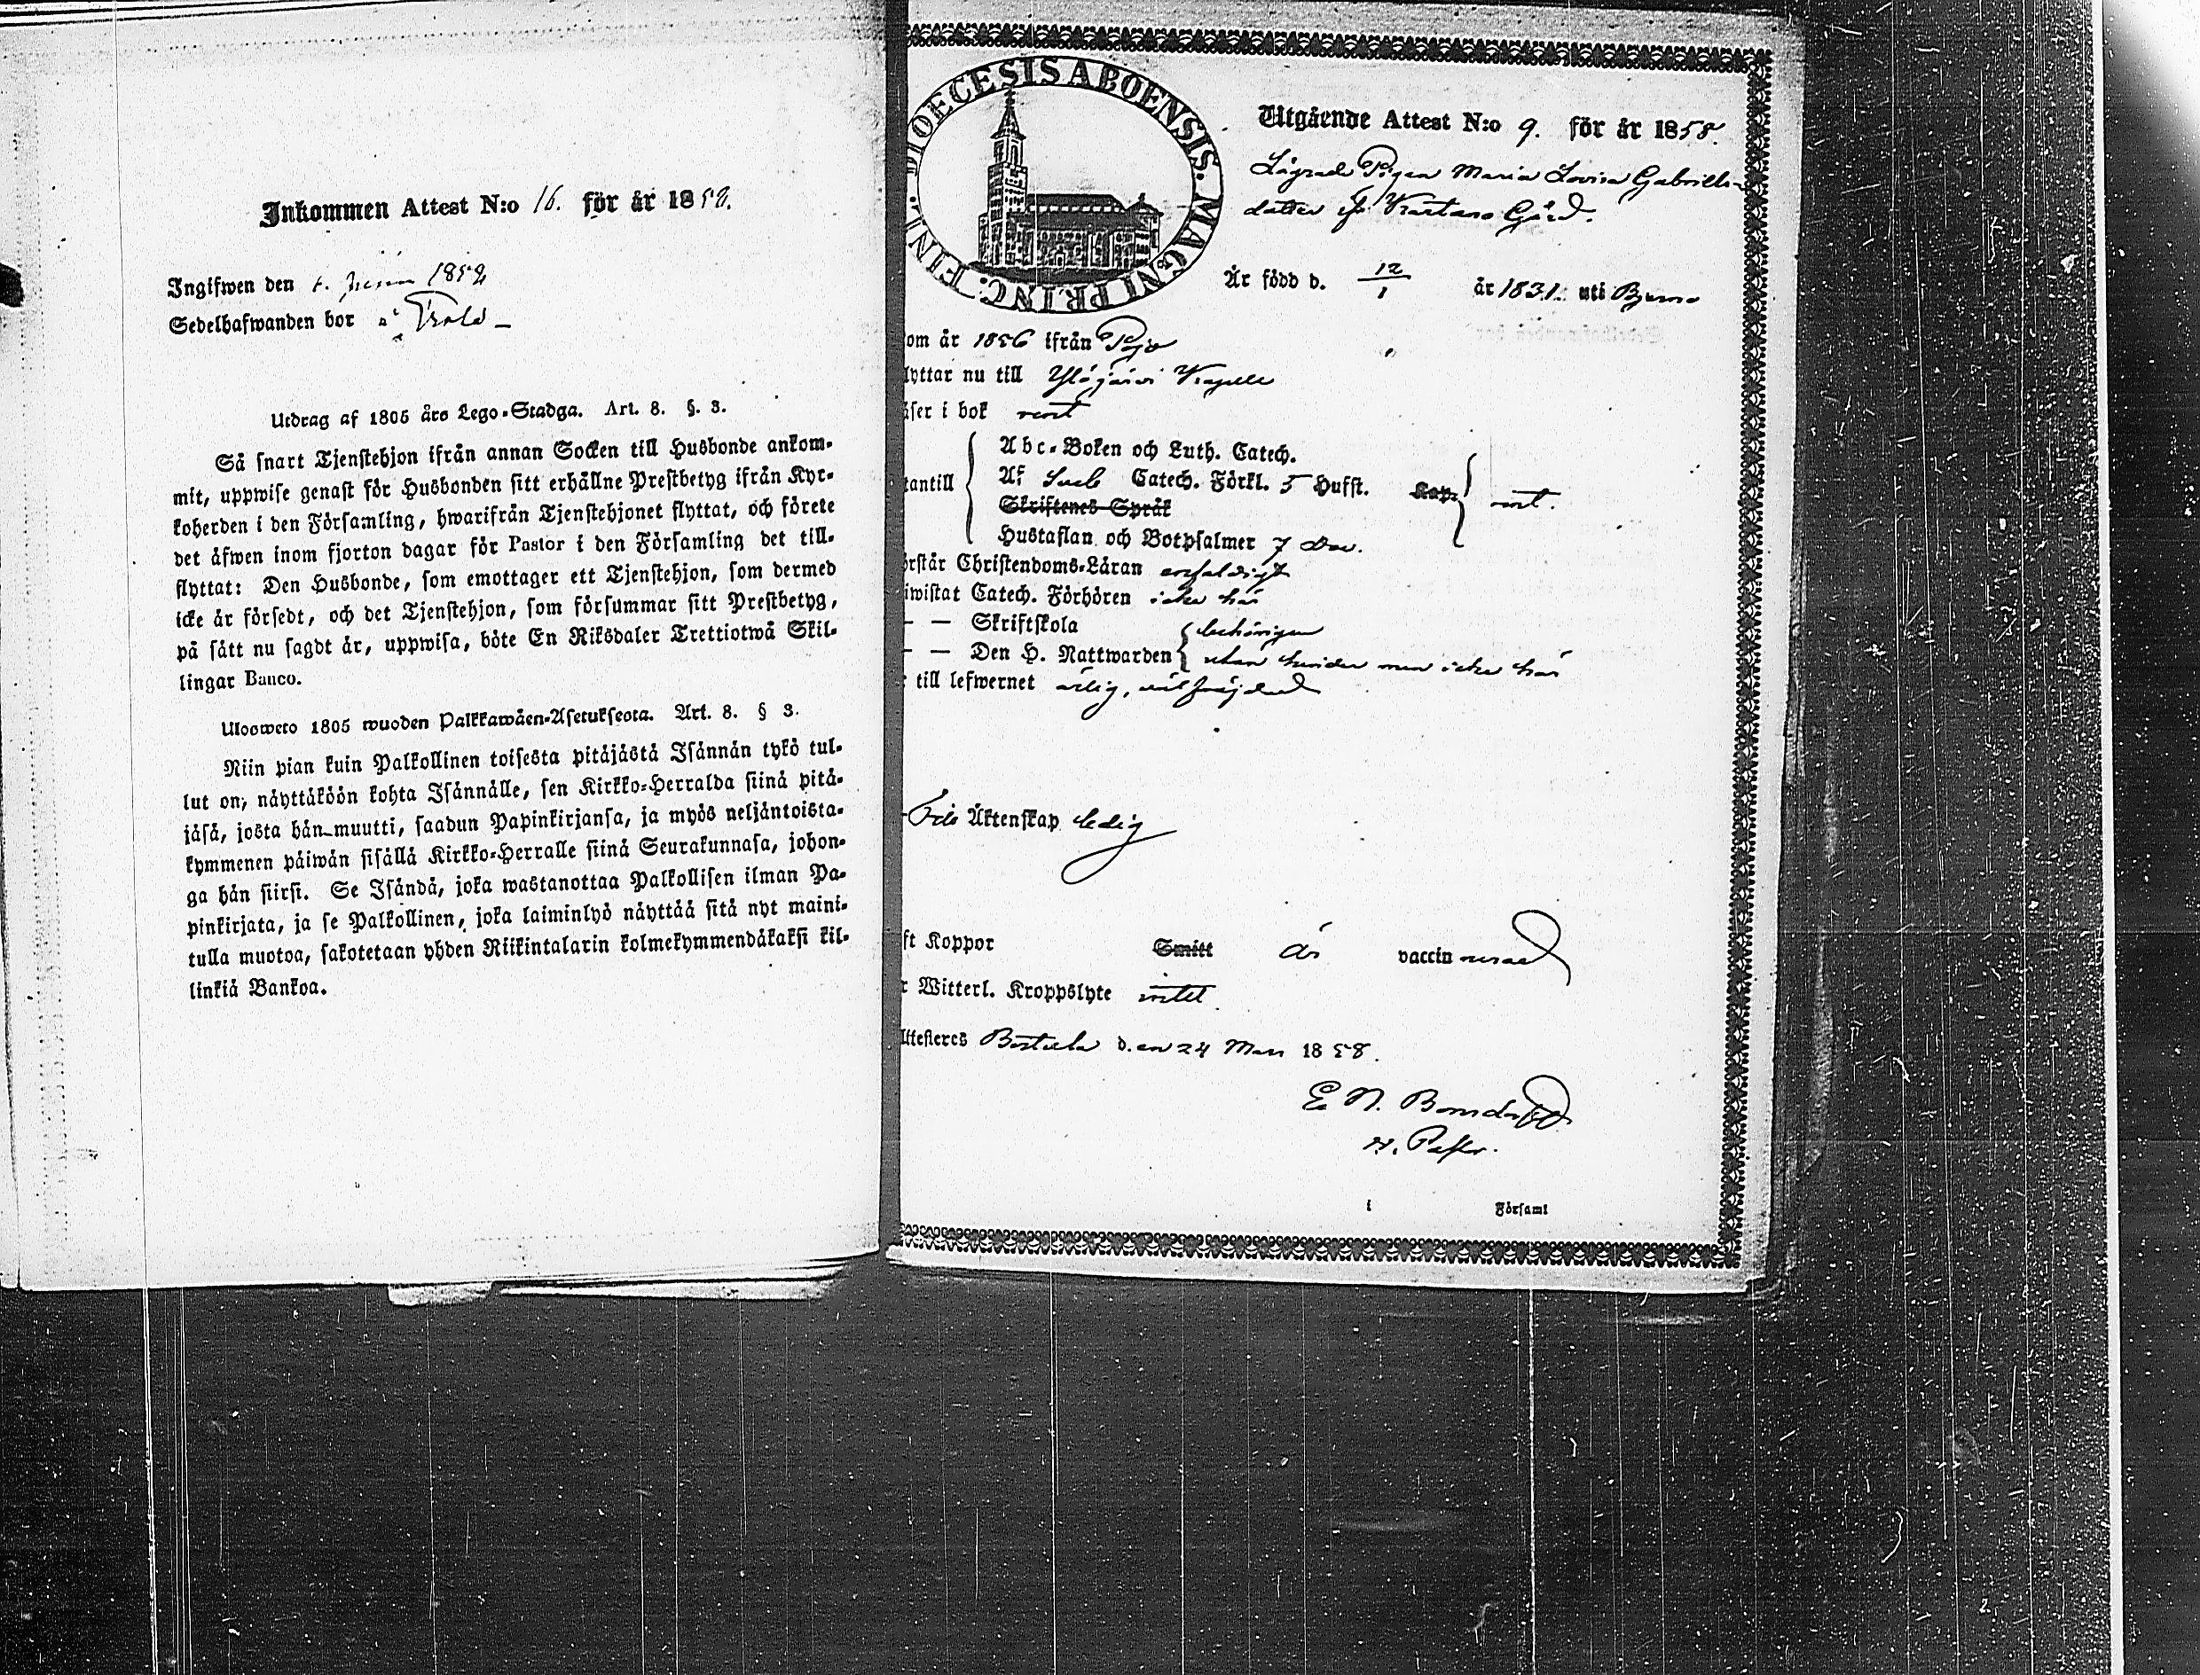 Inkommen Attest N:o 16. för år 1858.
Ingifwen den 1858
Sedelhafwanden bor å
Utdrag af 1805 års Lego-Stadga. Art. 8. §. 3.
Så snart Tjenstehjon ifrån annan Socken till Husbonde ankom-
mit, uppwise genast för Husbonden sitt erhållne Prestbetyg ifrån Kyr-
koherden i den Församling, hwarifrån Tjenstehjonet flyttat, och förete
det äfwen inom fjorton dagar för Pastor i den Församling det till-
flyttat: Den Husbonde, som emottager ett Tjenstehjon, som dermed
icke är försedt, och det Tjenstehjon, som försummar sitt Prestbetyg,
på sätt nu sagdt är, uppwisa, böte En Riksdaler Trettiotwå Skil-
lingar Banco.
Ulosweto 1805 wuoden Palkkawäen-Asetuksesta. Art. 8. § 3.
Niin pian kuin Palkollinen toisesta pitäjästä Isännän tykö tul-
lut on, näyttäköön kohta Isännälle, sen Kirkko-Herralda siinä pitä-
jäsä, josta hän muutti, saadun Papinkirjansa, ja myös neljäntoista-
kymmenen päiwän sisällä Kirkko-Herralle siinä Seurakunnasa, johon-
ga hän siirsi. Se Isändä, joka wastanottaa Palkollisen ilman Pa-
pinkirjata, ja se Palkollinen, joka laiminlyö näyttää sitä nyt maini-
tulla muotoa, sakotetaan yhden Riikintalarin kolmekymmendäkaksi kil-
linkiä Bankoa.
DIOECESIS ABOENSIS. MAGNI PRINC. FINL.
Utgående Attest N:o 9. för år 1858.
Pigan Maria Lovisa Gabriells-
dotter ifr. Kartano Gård.
Är född d. 12/1 år 1831. uti Bjerno
om år 1856 ifrån Pojo
lyttar nu till Ylöjärvi Kapell
äser i bok rent
Abc-Boken och Luth. Catech.
tantill Af Sveb Catech. Förkl. 5 Hufst. Kap. rent.
Skriftenes Språk
Hustaflan och Botpsalmer 7 Dav.
örstår Christendoms-Läran enfaldigt
iwistat Catech. Förhören icke här
— — Skriftskola behörigen
— — Den H. Nattwarden utan hinder men icke här
till lefwernet ärlig, välfrejdad
Från Äktenskap ledig
ft Koppor Smitt är vaccinerad
r Witterl. Kroppslyte intet
Attesteres d. en 24 Mars 1858.
E N. Bonsdorff
i Församl